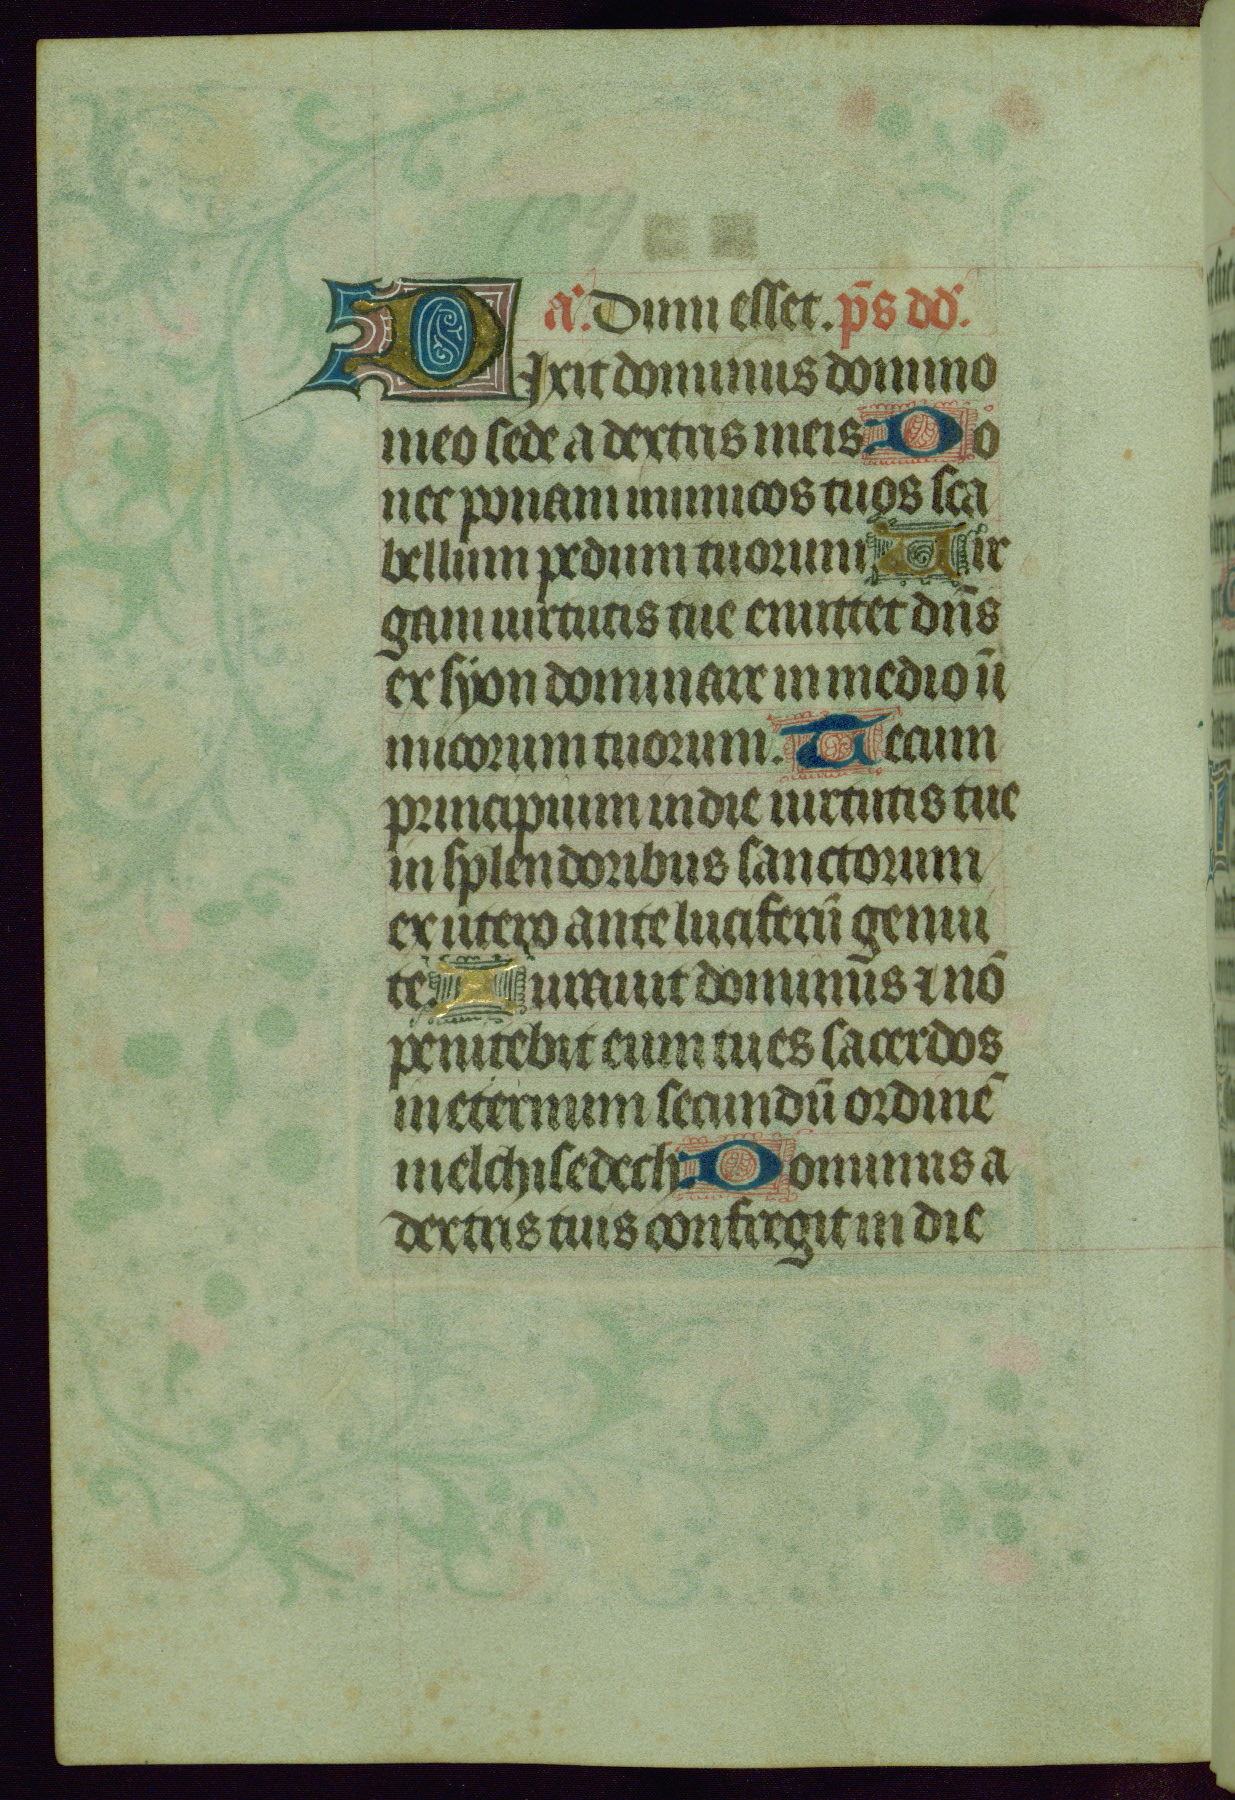 109
a. Dum esset. p̄s dd.
Dixit dominus domino
meo sede a dextris meis Do
nec ponam inimicos tuos sca
bellum pedum tuorum Uir
gam uirtutis tue emittet dn̄s
ex syon dominare in medio ini
micorum tuorum. Tecum
principium in die uirtutis tue
in splendoribus sanctorum
ex utero ante luciferū genui
te. Iurauit dominus ⁊ nō
penitebit eum tu es sacerdos
in eternum secundū ordinē
melchisedech. Dominus a
dextris tuis confregit in die